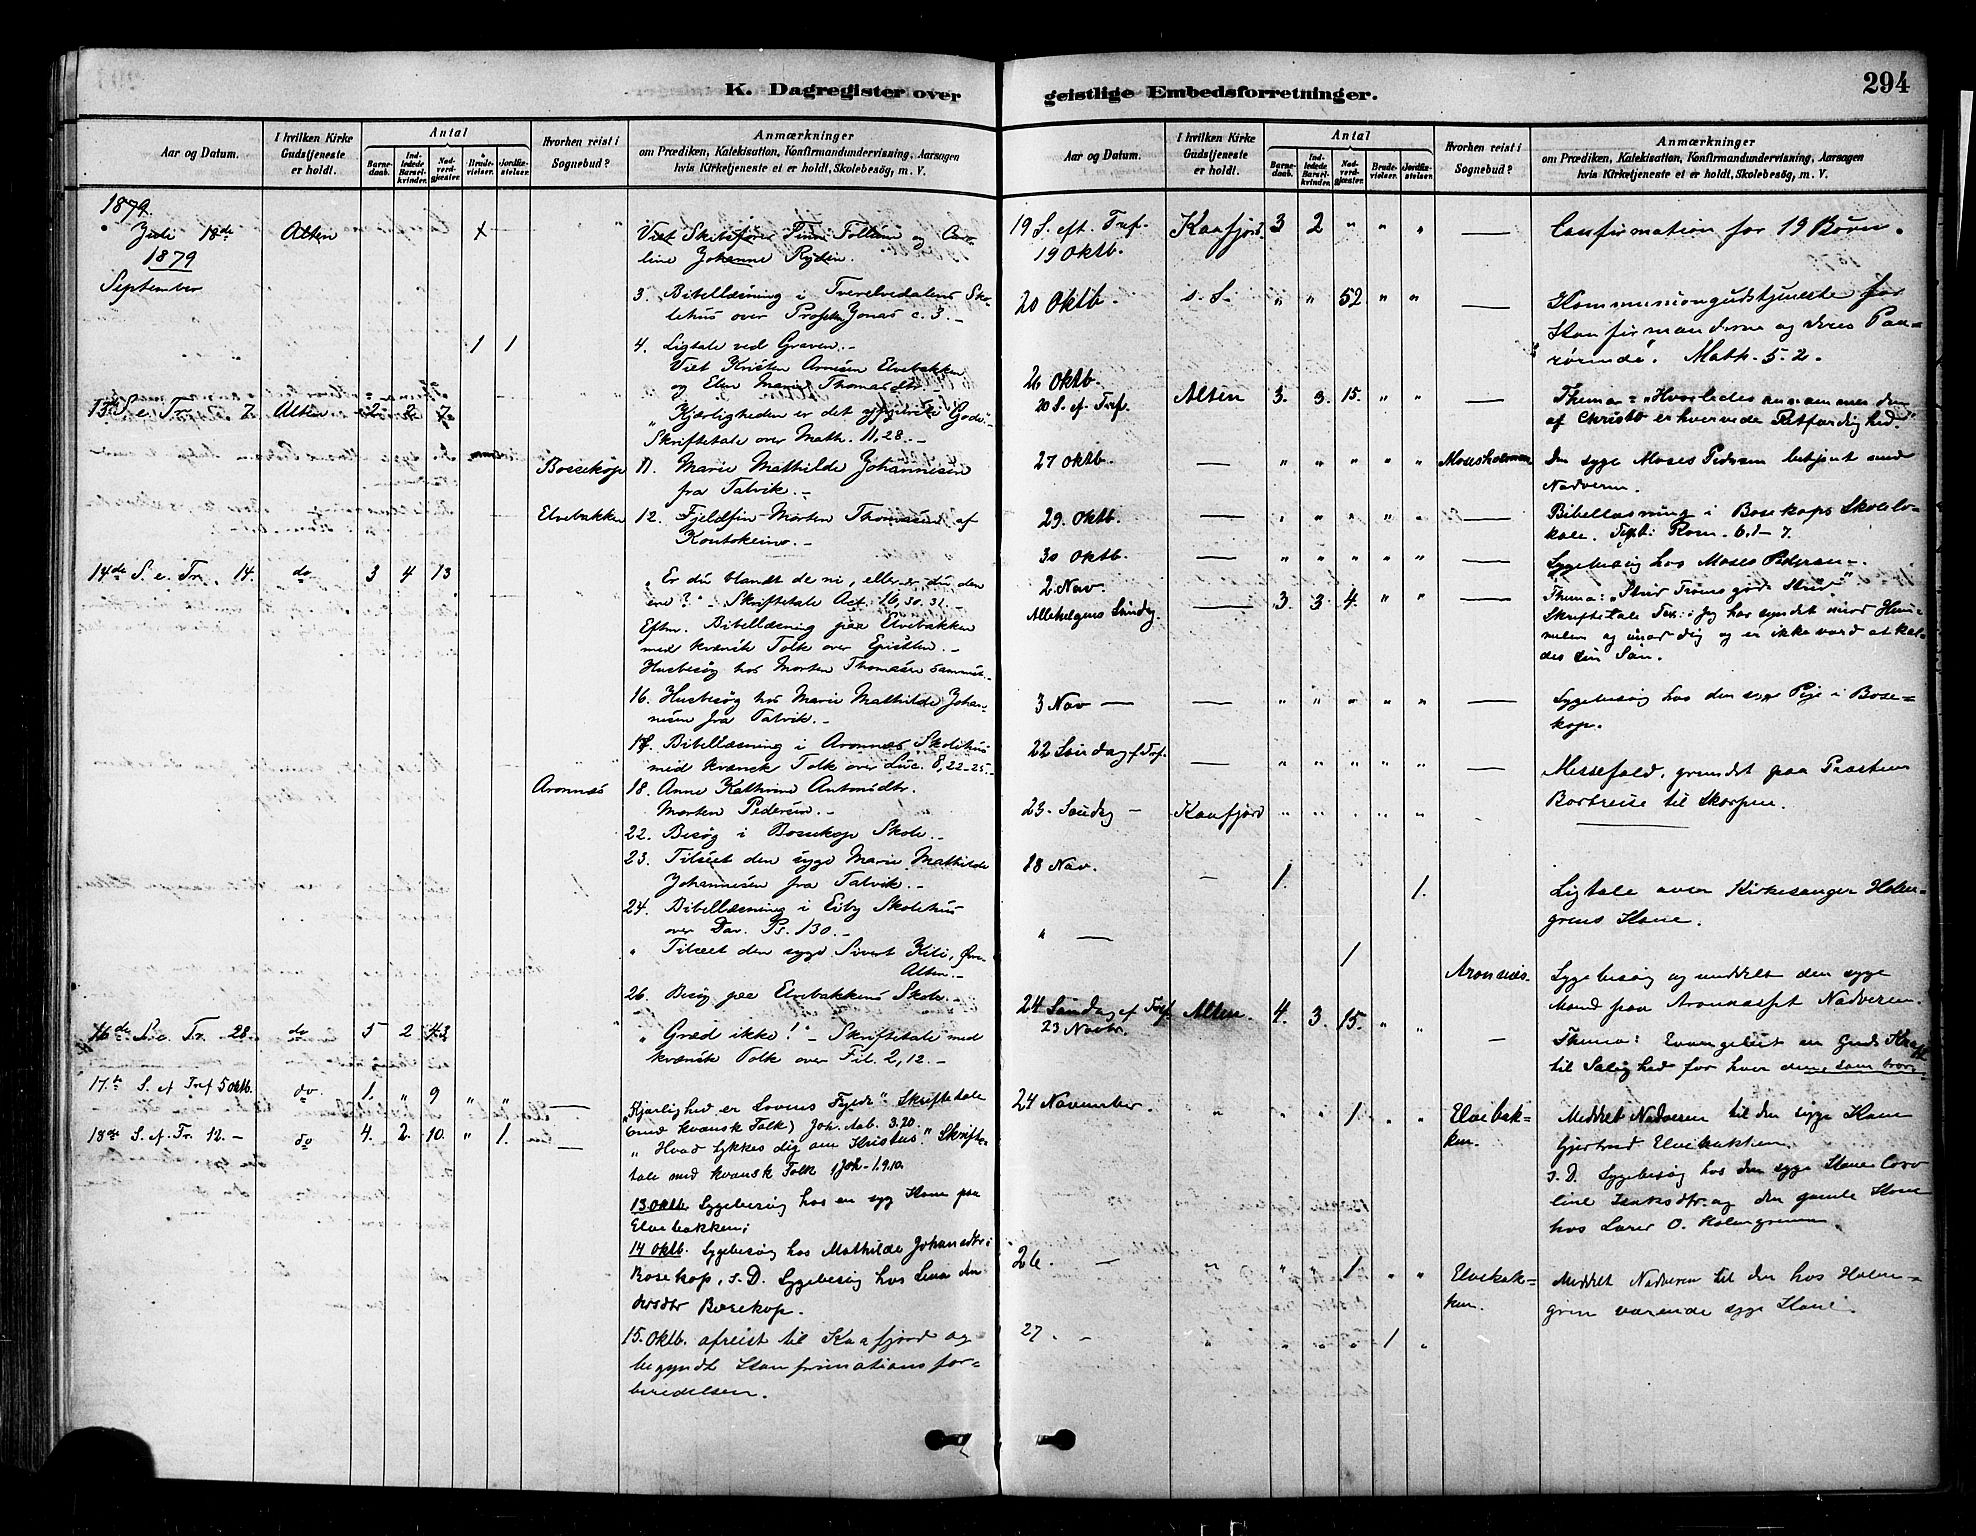 K. Dagregister over
Aar og Datum.
I hvilken Kirke Gudstjeneste er holdt.
Antal
Barnedaab.
Indledede Barselkvinder.
Nadverdgjæster.
Brudevielser.
Jordfæstelser.
Hvorhen reist i Sognebud?
Anmærkninger
om Prædiken, Katekisation, Konfirmandundervisning, Aarsagen
hvis Kirketjeneste ei er holdt, Skolebesøg, m. V.
1879
Juli 18de Alten x
line Johanne Rydén.
1879
September
3. Bibellæsning i Tverelvedalens Sko-
lehus over Proph. Jonas c. 3. -
1 1 4. Ligtale ved Graven. -
Viet Kristen Arnesen Elvebakken
og Elen Marie Thomasdtr.
13de S. e. Tr. 7. Alten 2 2 7 "Kjærligheden er det Gode.
Skriftetale over Math. 11, 28. -
Bossekop 11. Marie Mathilde Johannesen
fra Talvik. -
Elvebakken 12. Fjeldfin Morten Thomassen af
Koutokeino. -
14de S. e. Tr. 14. do 3 4 13 "Er du blandt de ni, eller er du den
ene?" - Skriftetale Act. 16, 30. 31. -
Eftm. Bibellæsning paa Elvebakken
med kvænsk Tolk over Epistlen. -
Husbesøg hos Morten Thomassen sammest.
16. Husbesøg hos Marie Mathilde Johan-
nesen fra Talvik. -
17. Bibellæsning i Aronnæs Skolehus
med kvænsk Tolk over Luc. 8, 22-25. -
Aronnæs 18. Anne Kathrine Antonsdtr.
Morten Pedersen. -
22. Besøg i Bossekop Skole. -
23. Tilseet den syge Marie Mathilde
Johannesen fra Talvik. -
24. Bibellæsning i Eiby Skolehus
over Dav. Ps. 130. -
" Tilseet den syge Sivert Kili, Øvre
Alten. -
26. Besøg paa Elvebakkens Skole. -
16de S. e. Tr. 28. do 5 2 43 "Græd ikke!" - Skriftetale med
kvænsk Tolk over Fil. 2, 12. -
17de S. ef Tref 5 oktb. do 1. " 9 " " — "Kjærlighed er Lovens Fylde" Skriftetale
(med kvænsk Tolk) Joh. Aab. 3.20.
18de S. ef. Tr. 12. - do 4. 2. 10. " 1. — "Hvad tykkes dig om Kristus." Skrifte-
tale med kvænsk Tolk 1 Joh - 1.9.10.
13 oktb Sygebesøg hos en syg Kone paa
Elvebakken;
14 oktb. Sygebesøg hos Mathilde Johansdtr i
Bosekop, s. D. Sygebesøg hos
Bosekop.
15. oktb. afreist til Kaafjord og
begyndt Konfirmationsfor-
beredelsen.
geistlige Embedsforretninger.
294
Aar og Datum.
I hvilken Kirke Gudstjeneste er holdt.
Antal
Barnedaab.
Indledede Barselkvinder.
Nadverdgjæster.
Brudevielser.
Jordfæstelser.
Hvorhen reist i Sognebud?
Anmærkninger
om Prædiken, Katekisation, Konfirmandundervisning, Aarsagen
hvis Kirketjeneste ei er holdt, Skolebesøg, m. V.
19 S. eft Tref. Kaafjord. 3 2 " " " — Confirmation for 19 Børn.
19 Oktb.
20 Oktb. s. S. " " 52 " " — Kommuniongudstjeneste for
Konfirmanderne og deres Paa-
rørende". Math. 5. 2.
26 Oktb.
20 S. ef. Tref. Alten 3. 3. 15. " " — Thema: "Hvorledes den
af Christo erhvervede Retfærdighed."
27 Oktb. — " " " " " Mosesholmen Den syge Moses Pedersen betjent med
Nadveren.
29. Oktb. — " " " " " — Bibellæsning i Bosekops Skolelo-
kale. Text: Rom. 6.1-7.
30 Oktb. — " " " " " — Sygebesøg hos Moses Pedersen -
2 Nov.
Allehelgens Søndag. — 3. 3. 4. " " — Thema: "Strid Troens gode Strid"
Skriftetale Tex: Jeg har syndet mod Him-
melen og mod dig og er ikke værd at kal-
des din Søn.
3 Nov — — " " " " " — Sygebesøg hos den syge i Bose-
kop.
22 Søndag ef Tref. — " " " " " — Messefald, grundet paa Præstens
Bortreise til Skorpen.
23. Søndag — Kaafjord " " " " "
18 Nov. — 1. 1. Ligtale over Kirkesanger Holm-
grens Kone.
" — 1 Aronnæs. Sygebesøg og meddelt den syge
Mand paa Aronnæsset Nadveren.
24 Søndag ef Tref. Alten. 4. 3. 15. " " — Thema: Evangeliet en Guds Kraft
23 Novbr. til Salighed for hver den, som tror.
24 November. " " " 1 " " Elvebak-
ken. Meddelt Nadveren til den syge Kone
Gjertrud Elvebakken.
s. D. Sygebesøg hos den syge Kone Caro
line og den gamle Kone
hos Lærer O. Holmgreen.
26. — " " 1 " " Elvebak-
ken. Meddelt Nadveren til den hos Holm-
gren værende syge Kone.
27. - " " " " 1 "